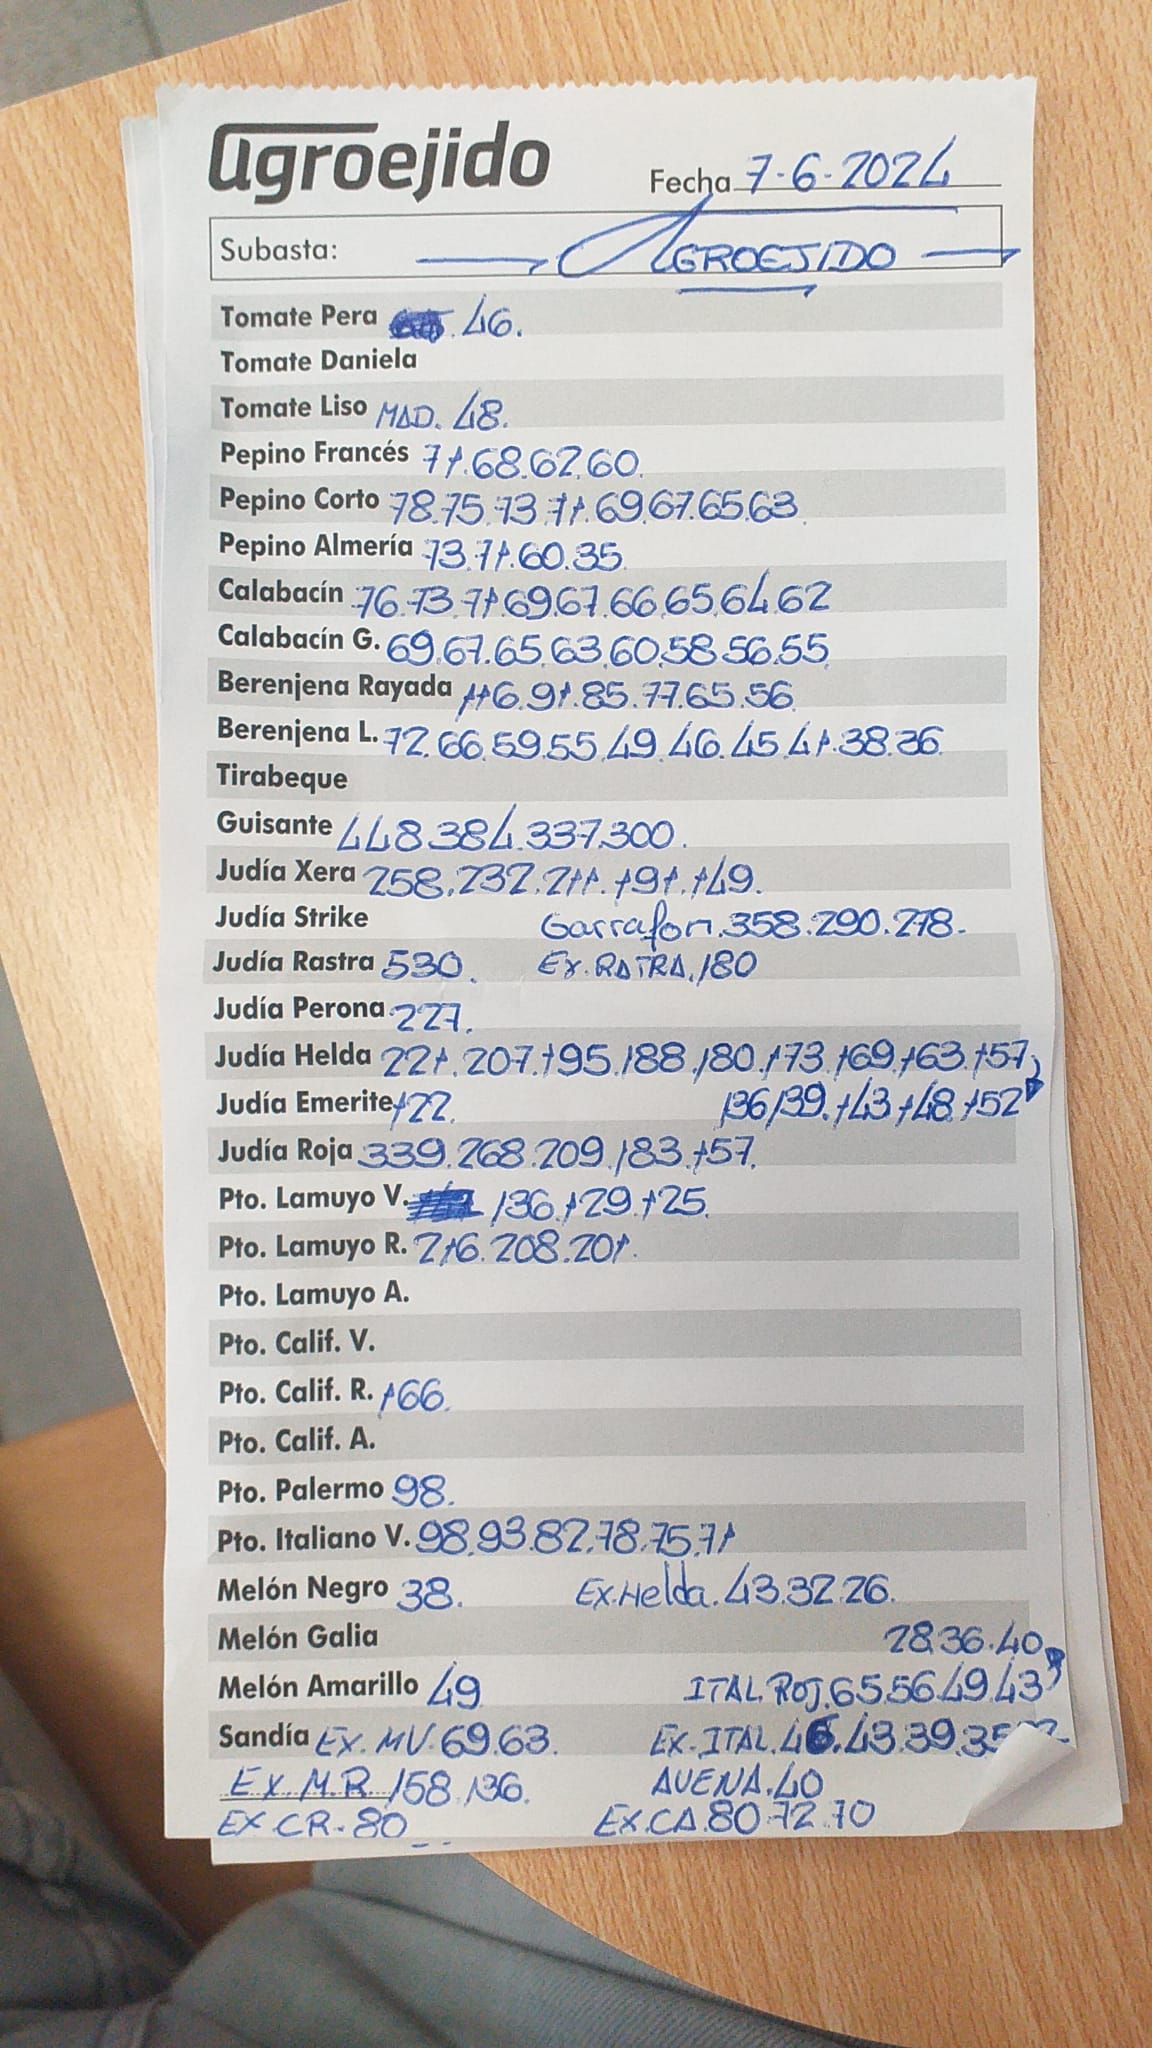 agroejido
Fecha 7-6-2024
Subasta: AGROEJIDO
Tomate Pera 46.
Tomate Daniela
Tomate Liso MAD. 48.
Pepino Francés 71.68.62.60.
Pepino Corto 78.75.73.71.69.67.65.63.
Pepino Almería 73.71.60.35.
Calabacín 76.73.71.69.67.66.65.64.62
Calabacín G. 69.67.65.63.60.58.56.55.
Berenjena Rayada 116.91.85.77.65.56.
Berenjena L. 72.66.59.55.49.46.45.41.38.36.
Tirabeque
Guisante 448.384.337.300.
Judía Xera 258.232.211.191.149.
Judía Strike Garrafon.358.290.278.
Judía Rastra 530. EX.RATRA.180
Judía Perona 227.
Judía Helda 221.207.195.188.180.173.169.163.157
Judía Emerite 122. 136.139.143.148.152
Judía Roja 339.268.209.183.157.
Pto. Lamuyo V. 136.129.125.
Pto. Lamuyo R. 216.208.201.
Pto. Lamuyo A.
Pto. Calif. V.
Pto. Calif. R. 166.
Pto. Calif. A.
Pto. Palermo 98.
Pto. Italiano V. 98.93.82.78.75.71
Melón Negro 38. Ex.Helda.43.32.26.
Melón Galia 28.36.40
Melón Amarillo 49 ITAL.ROJ.65.56.49.43
Sandía EX.MV.69.63. EX.ITAL.46.43.39.35
EX M.R 158.136. AVENA.40
EX CR-80 EX.CA.80.72.70